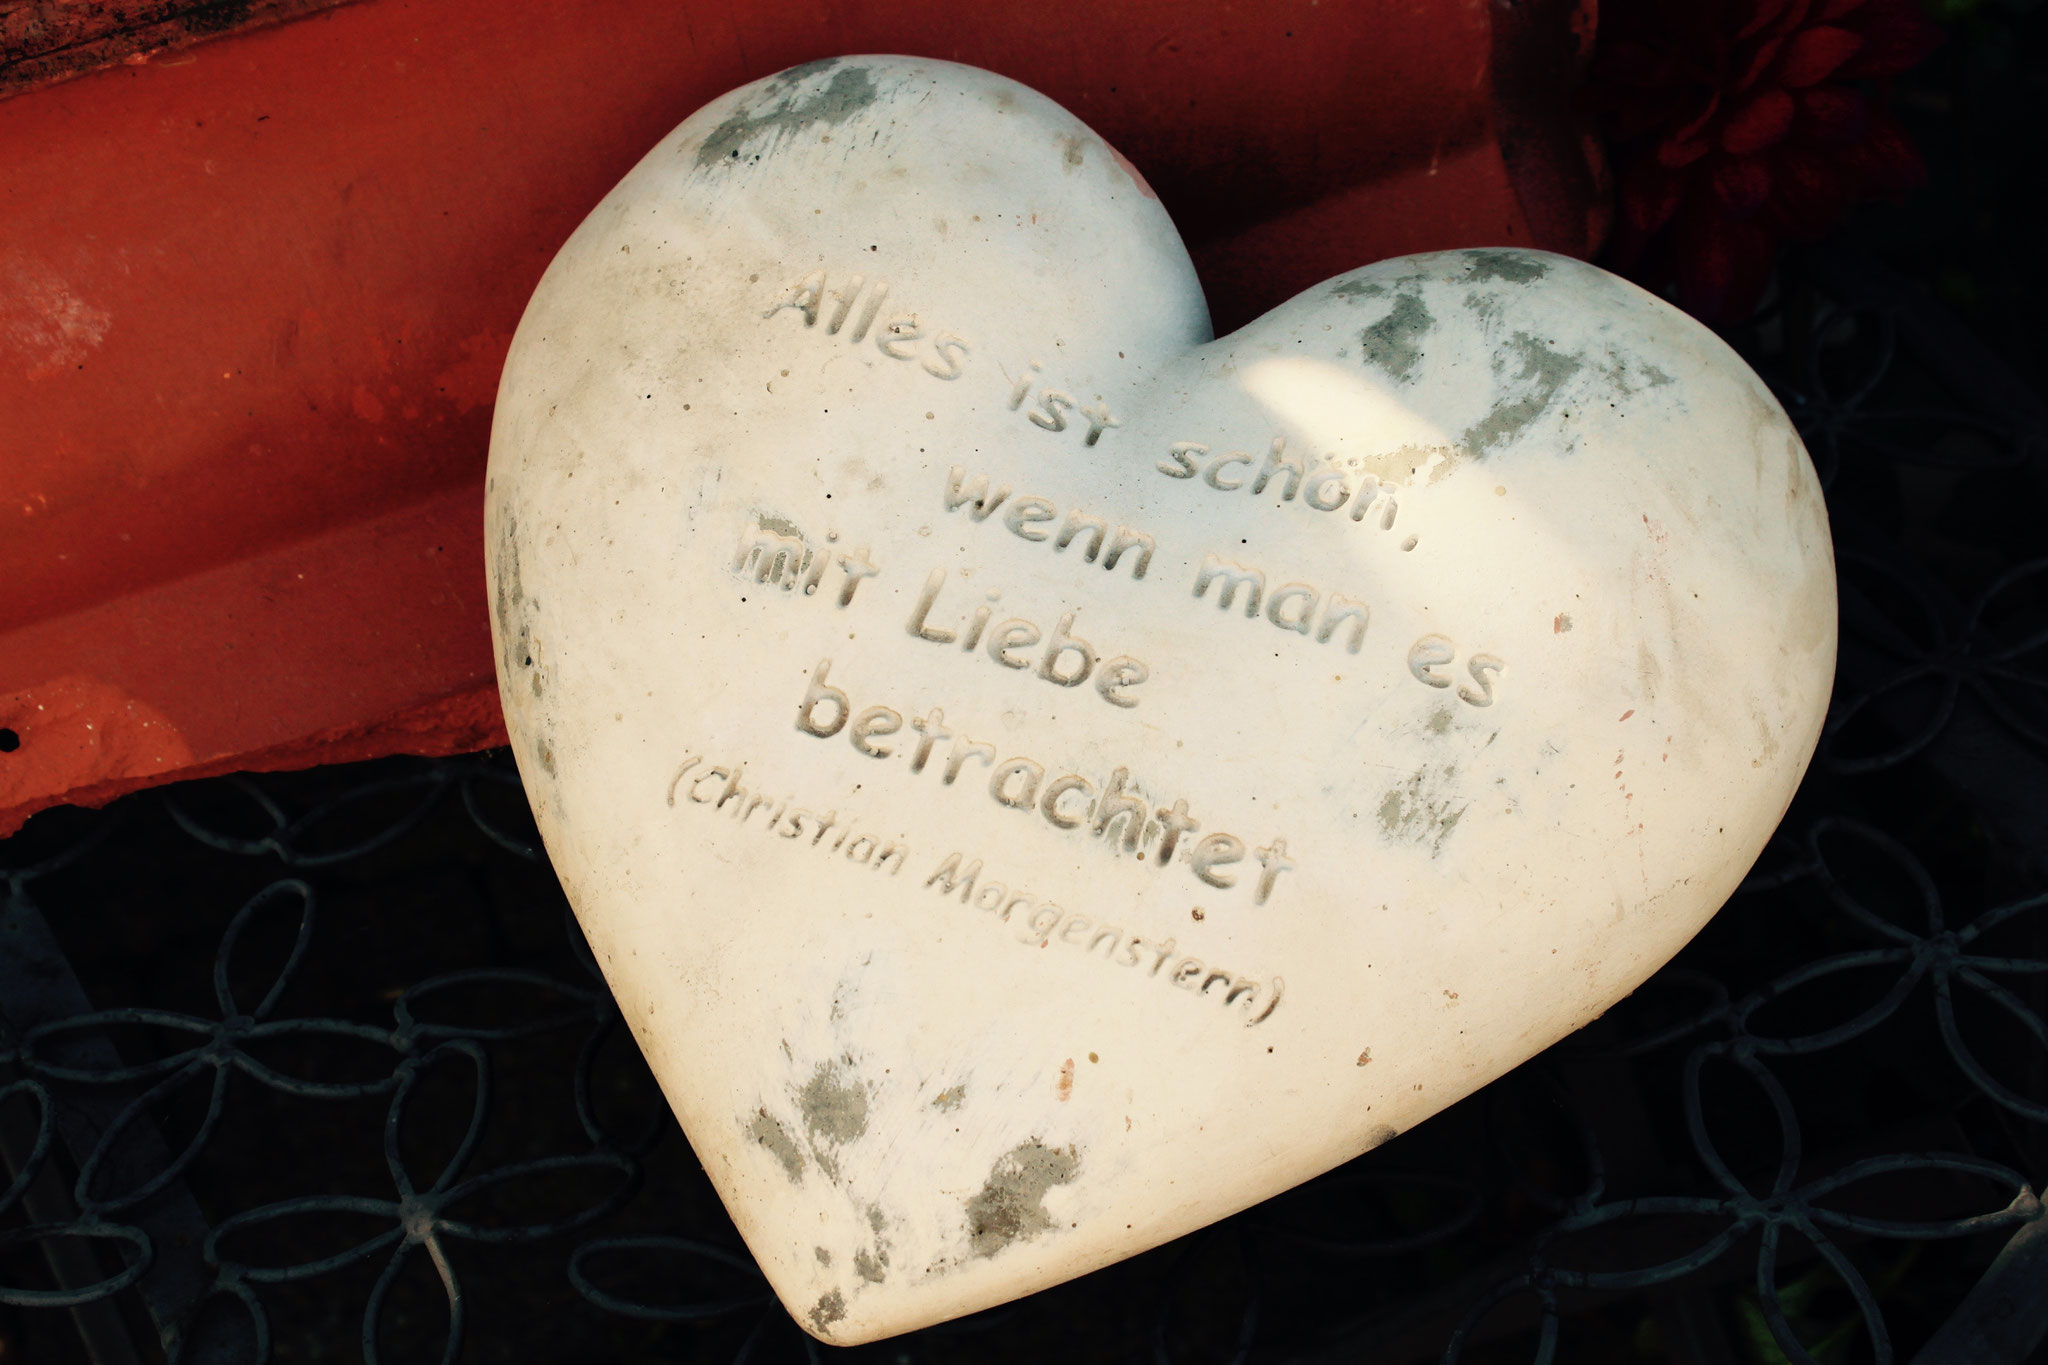 Alles ist schön,
wenn man es
mit Liebe
betrachtet
(Christian Morgenstern)